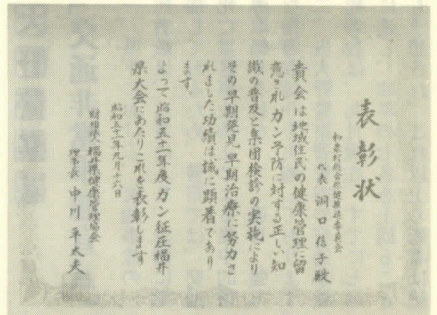 表彰状
和泉村総合保健推進委員会
代表 洞口信子殿
貴会は地域住民の健康管理に留
意されガン予防に対する正しい知
識の普及と集団検診の実施により
その早期発見早期治療に努力さ
れました功績は誠に顕著であり
ます
よって昭和五十一年度ガン征圧福井
県大会にあたりこれを表彰します
昭和五十一年九月十六日
財団法人 福井県健康管理協会
理事長 中川平太夫